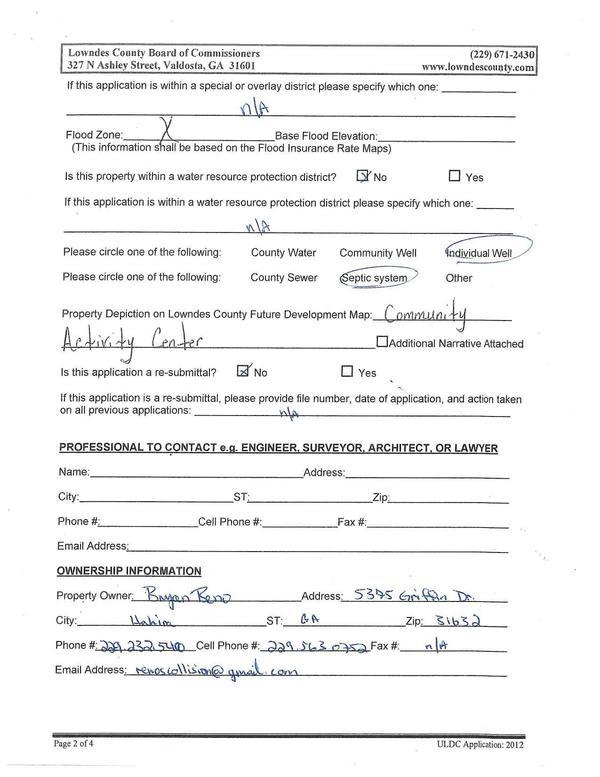 Lowndes County Board of Commissioners (229) 671-2430
327 N Ashley Street, Valdosta, GA 31601 www.lowndescounty.com
If this application is within a special or overlay district please specify which one:
n/A
Flood Zone: X Base Flood Elevation:
(This information shall be based on the Flood Insurance Rate Maps)
Is this property within a water resource protection district? No Yes
If this application is within a water resource protection district please specify which one:
n/A
Please circle one of the following: County Water Community Well Individual Well
Please circle one of the following: County Sewer Septic system Other
Property Depiction on Lowndes County Future Development Map: Community
Activity Center Additional Narrative Attached
Is this application a re-submittal? No Yes
If this application is a re-submittal, please provide file number, date of application, and action taken
on all previous applications: n/A
PROFESSIONAL TO CONTACT e.g. ENGINEER, SURVEYOR, ARCHITECT, OR LAWYER
Name: Address:
City: ST: Zip:
Phone #: Cell Phone #: Fax #:
Email Address:
OWNERSHIP INFORMATION
Property Owner: Bryan Reno Address: 5395 Griffin Dr.
City: Hahira ST: GA Zip: 31632
Phone #: Cell Phone #: 229.563.0752 Fax #: n/A
Email Address: renoscollision@gmail.com
Page 2 of 4 ULDC Application: 2012